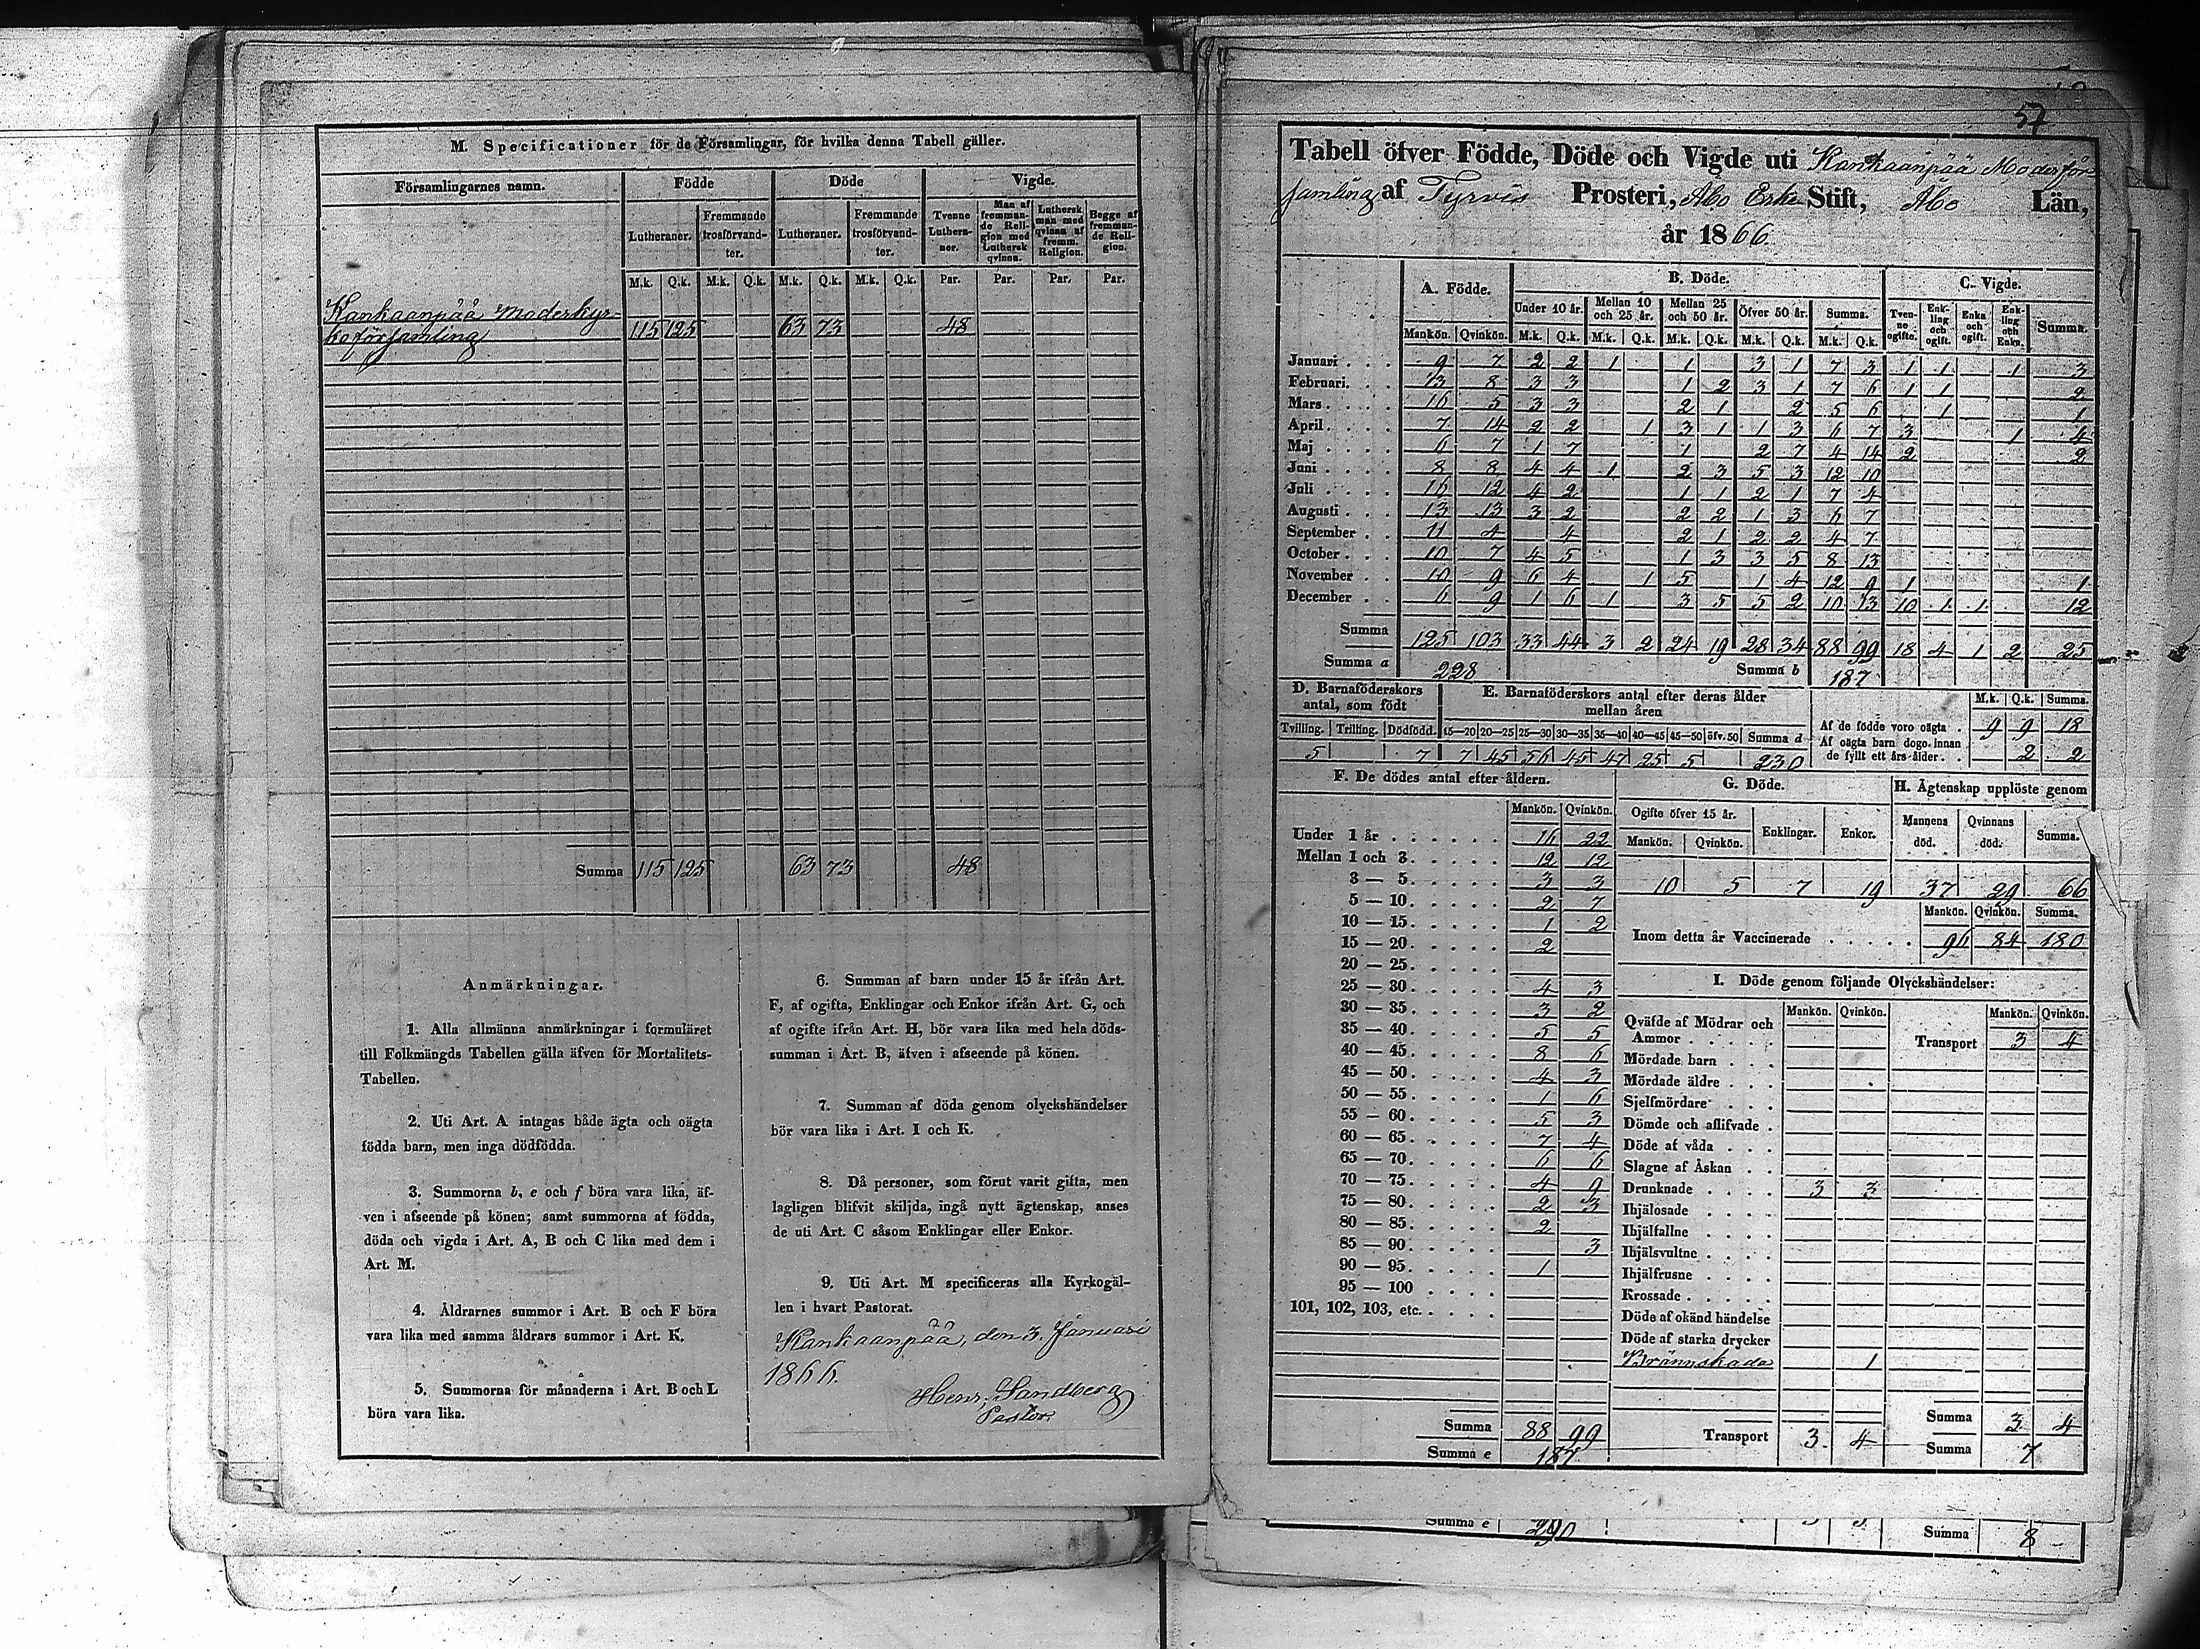 M. Specificationer för de Församlingar, för hvilka denna Tabell gäller.
Församlingarnes namn. Födde Döde Vigde.
Lutheraner. Fremmande trosförvandter. Lutheraner. Fremmande trosförvandter. Tvenne Lutheraner. Man af fremmande Religion med Luthersk qvinna. Luthersk man med qvinna af fremm. Religion. Begge af fremmande Religion.
M.k. Q.k. M.k. Q.k. M.k. Q.k. M.k. Q.k. Par. Par. Par. Par.
Kankaanpää Moderkyr-
koförsamling 115 125 63 73 48
Summa 115 125 63 73 48
Anmärkningar.
1. Alla allmänna anmärkningar i formuläret
till Folkmängds Tabellen gälla äfven för Mortalitets-
Tabellen.
2. Uti Art. A intagas både ägta och oägta
födda barn, men inga dödfödda.
3. Summorna b, e och f böra vara lika, äf-
ven i afseende på könen; samt summorna af födda,
döda och vigda i Art. A, B och C lika med dem i
Art. M.
4. Åldrarnes summor i Art. B och F böra
vara lika med samma åldrars summor i Art. K.
5. Summorna för månaderna i Art. B och L
böra vara lika.
6. Summan af barn under 15 år ifrån Art.
F, af ogifta, Enklingar och Enkor ifrån Art. G, och
af ogifte ifrån Art. H, bör vara lika med hela döds-
summan i Art. B, äfven i afseende på könen.
7. Summan af döda genom olyckshändelser
bör vara lika i Art. I och K.
8. Då personer, som förut varit gifta, men
lagligen blifvit skiljda, ingå nytt ägtenskap, anses
de uti Art. C såsom Enklingar eller Enkor.
9. Uti Art. M specificeras alla Kyrkogäl-
len i hvart Pastorat.
Kankaanpää, den 3. Januari
1866.
Henr. Sandberg
Pastor.
57
Tabell öfver Födde, Döde och Vigde uti Kankaanpää Moderför
samling af Tyrvis Prosteri, Åbo Erke Stift, Åbo Län,
år 1866
A. Födde. B. Döde. C. Vigde.
Under 10 år. Mellan 10 och 25 år. Mellan 25 och 50 år. Öfver 50 år. Summa. Tvenne ogifte. Enkling och ogift. Enka och ogift. Enkling och Enka. Summa.
Mankön. Qvinkön. M.k. Q.k. M.k. Q.k. M.k. Q.k. M.k. Q.k. M.k. Q.k.
Januari 9 7 2 2 1 1 3 1 7 3 1 1 1 3
Februari 13 8 3 3 1 2 3 1 7 6 1 1 2
Mars 16 5 3 3 2 1 2 5 6 1 1
April 7 14 2 2 1 3 1 1 3 6 7 3 1 4
Maj 6 7 1 7 1 2 7 4 14 2 2
Juni 8 8 4 4 1 2 3 5 3 12 10
Juli 16 12 4 2 1 1 2 1 7 4
Augusti 13 13 3 2 2 2 1 3 6 7
September 11 4 4 2 1 2 2 4 7
October 10 7 4 5 1 3 3 5 8 13
November 10 9 6 4 1 5 1 4 12 9 1 1
December 6 9 1 6 1 3 5 5 2 10 13 10 1 1 12
Summa 125 103 33 44 3 2 24 19 28 34 88 99 18 4 1 2 25
Summa a 228 Summa b 187
D. Barnaföderskors antal, som födt E. Barnaföderskors antal efter deras ålder mellan åren M.k. Q.k. Summa.
Tvilling. Trilling. Dödfödd. 15—20 20—25 25—30 30—35 35—40 40—45 45—50 öfv. 50 Summa d
5 7 7 45 56 45 47 25 5 230
Af de födde voro oägta 9 9 18
Af oägta barn dogo innan
de fyllt ett års ålder 2 2
F. De dödes antal efter åldern.
Mankön. Qvinkön.
Under 1 år 16 22
Mellan 1 och 3 12 12
3 — 5 3 3
5 — 10 2 7
10 — 15 1 2
15 — 20 2
20 — 25
25 — 30 4 3
30 — 35 3 2
35 — 40 5 5
40 — 45 8 6
45 — 50 4 3
50 — 55 1 6
55 — 60 5 3
60 — 65 7 4
65 — 70 6 6
70 — 75 4 9
75 — 80 2 3
80 — 85 2
85 — 90 3
90 — 95 1
95 — 100
101, 102, 103, etc.
Summa 88 99
Summa e 187
G. Döde. H. Ägtenskap upplöste genom
Ogifte öfver 15 år. Enklingar. Enkor. Mannens död. Qvinnans död. Summa.
Mankön. Qvinkön.
10 5 7 19 37 29 66
Mankön. Qvinkön. Summa.
Inom detta år Vaccinerade 96 84 180
I. Döde genom följande Olyckshändelser:
Mankön. Qvinkön. Mankön. Qvinkön.
Qväfde af Mödrar och
Ammor Transport 3 4
Mördade barn
Mördade äldre
Sjelfmördare
Dömde och aflifvade
Döde af våda
Slagne af Åskan
Drunknade 3 3
Ihjälosade
Ihjälfallne
Ihjälsvultne
Ihjälfrusne
Krossade
Döde af okänd händelse
Döde af starka drycker
Brännskada 1
Transport 3 4 Summa 3 4
Summa 7
Summa e 290 Summa 8